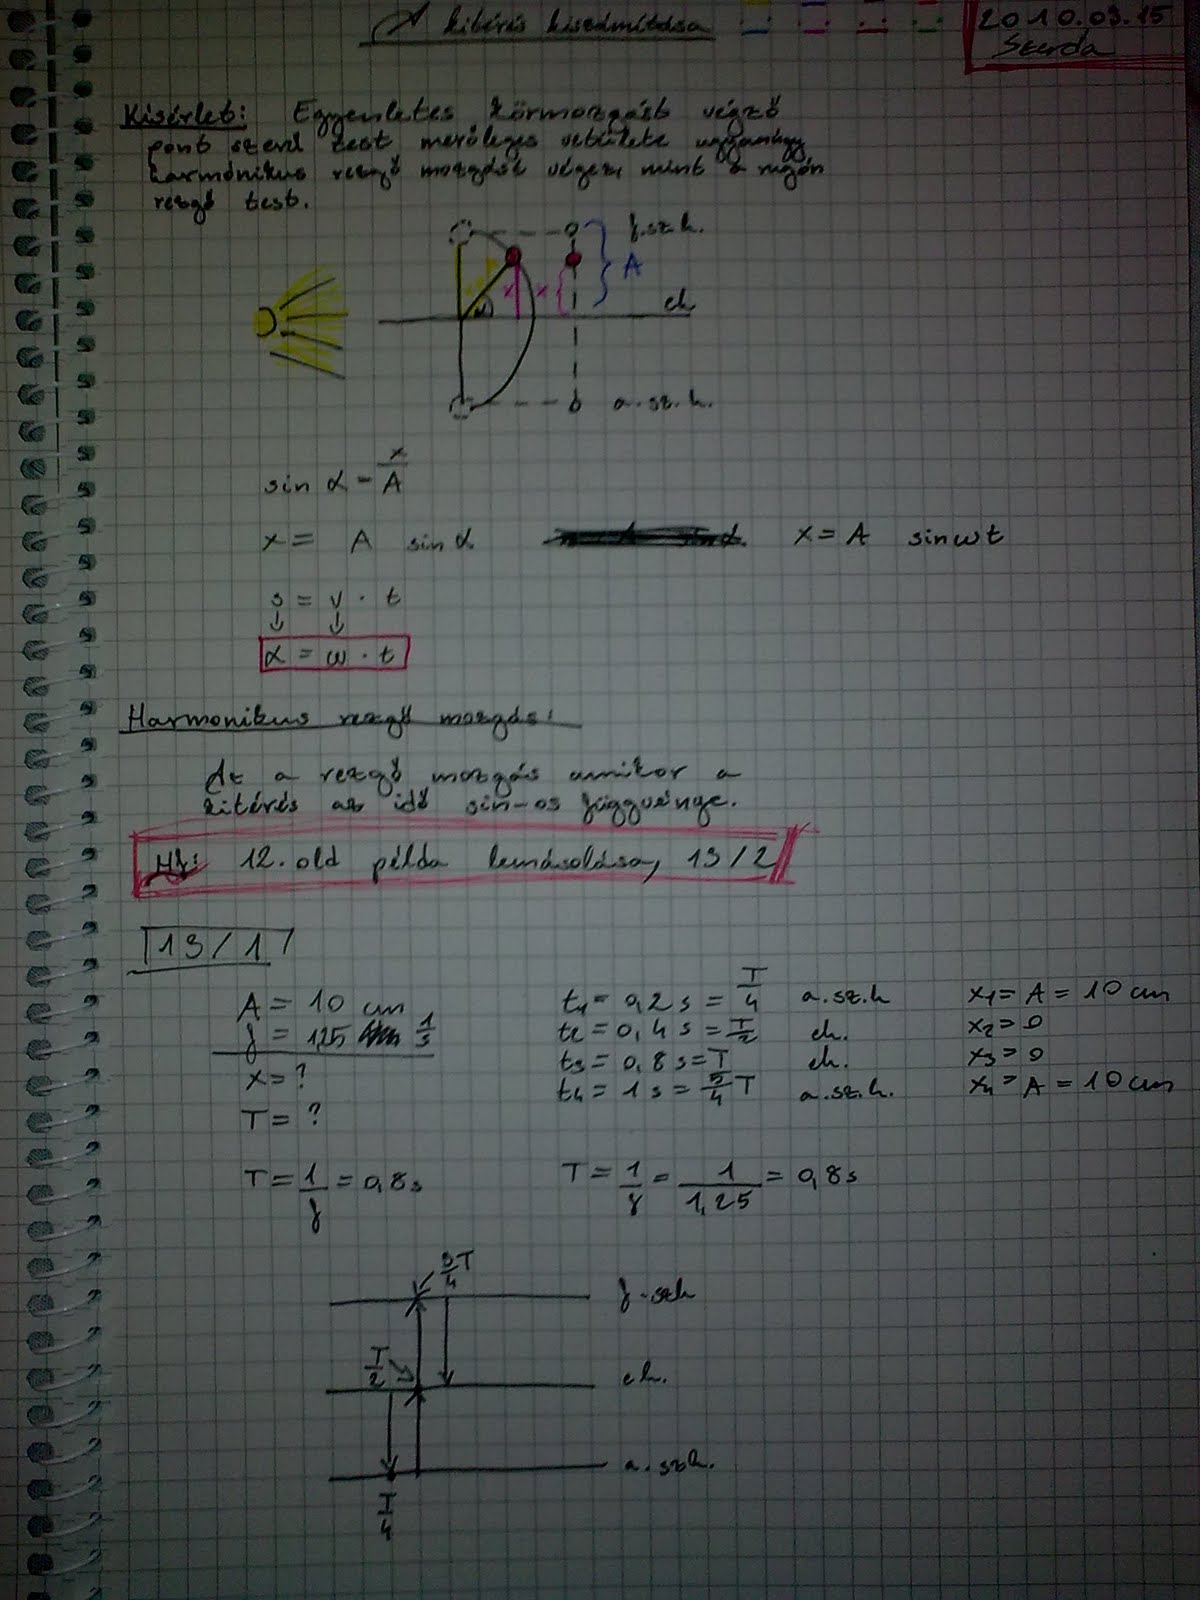 A kitérés kiszámítása
2010.09.15
Szerda
Kisérlet: Egyenletes körmozgást végző
pont szerű test merőleges vetülete ugyanúgy
harmónikus rezgő mozgást végez, mint a rugón
rezgő test.
f.sz.h.
A
x x
α
eh
a.sz.h.
sin α = x/A
x = A sin α x = A sin ωt
s = v · t
↓ ↓
α = ω · t
Harmonikus rezgő mozgás:
Az a rezgő mozgás amikor a
kitérés az idő sin-os függvénye.
Hf: 12. old példa lemásolása, 13/2
13/1
A = 10 cm
f = 1,25 1/s
x = ?
T = ?
t₁ = 0,2 s = T/4 a.sz.h x₁ = A = 10 cm
t₂ = 0,4 s = T/2 eh. x₂ = 0
t₃ = 0,8 s = T eh. x₃ = 0
t₄ = 1 s = 5/4 T a.sz.h. x₄ = A = 10 cm
T = 1/f = 0,8 s T = 1/f = 1/1,25 = 0,8 s
3T/4
f.szh
T/2
eh.
a.szh.
T/4